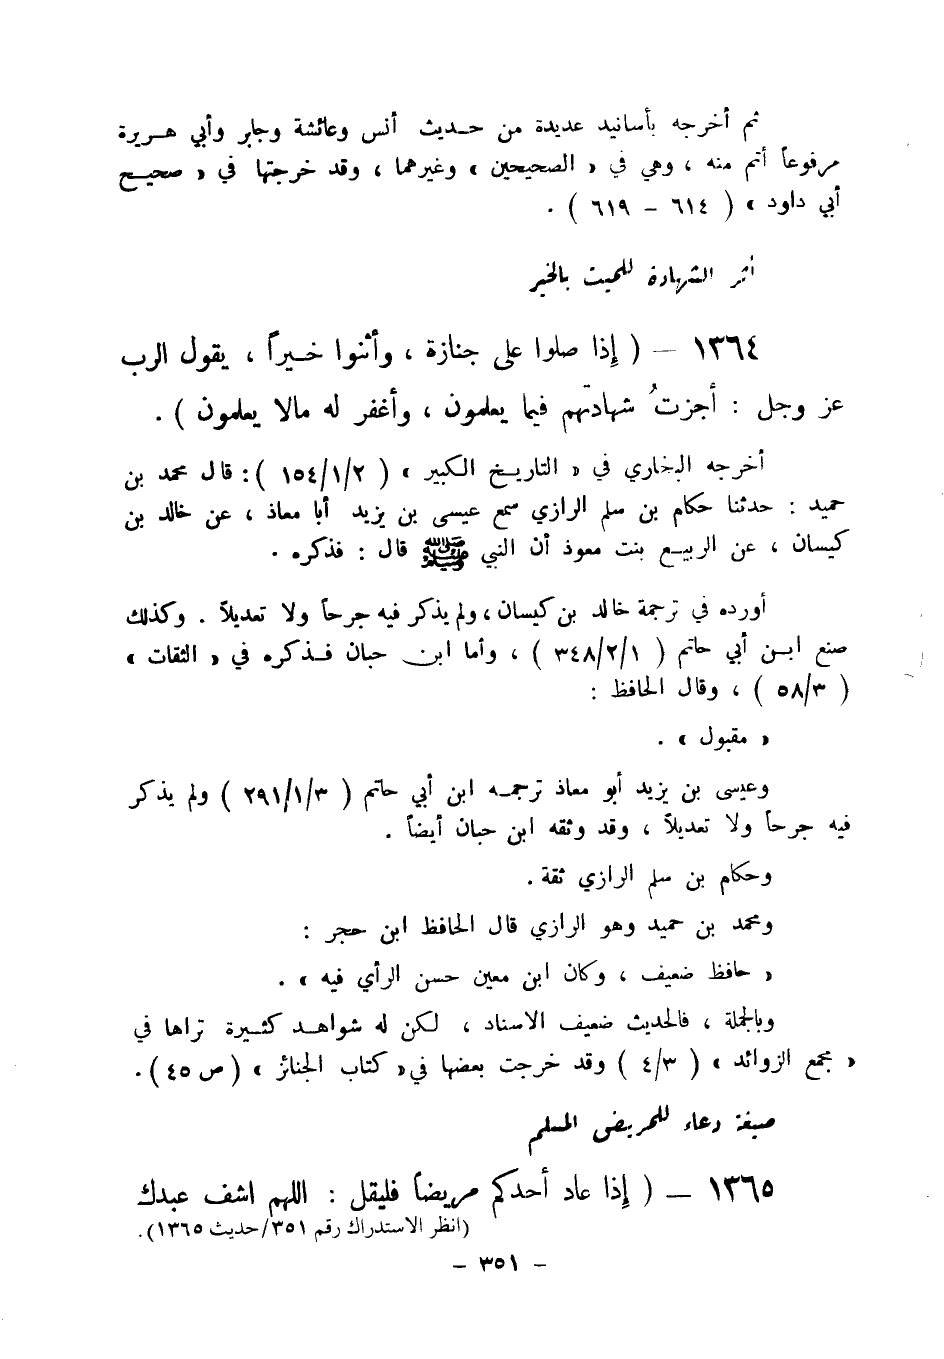 ثم أخرجه بأسانيد عديدة من حديث أنس وعائشة وجابر وأبي هريرة
مرفوعاً أتم منه ، وهي في « الصحيحين » وغيرهما ، وقد خرجتها في « صحيح
أبي داود » ( ٦١٤ - ٦١٩ ) .
أثر الشهادة للميت بالخير
١٣٦٤ - ( إذا صلوا على جنازة ، وأثنوا خيراً ، يقول الرب
عز وجل : أجزتُ شهادتهم فيما يعلمون ، وأغفر له مالا يعلمون ) .
أخرجه البخاري في « التاريخ الكبير » ( ١٥٤/١/٢ ): قال محمد بن
حميد : حدثنا حكام بن سلم الرازي سمع عيسى بن يزيد أبا معاذ ، عن خالد بن
كيسان ، عن الربيع بنت معوذ أن النبي ﷺ قال : فذكره .
أورده في ترجمة خالد بن كيسان، ولم يذكر فيه جرحاً ولا تعديلاً . وكذلك
صنع ابن أبي حاتم ( ٣٤٨/٢/١ ) ، وأما ابن حبان فذكره في « الثقات »
( ٥٨/٣ ) ، وقال الحافظ :
« مقبول » .
وعيسى بن يزيد أبو معاذ ترجمه ابن أبي حاتم ( ٢٩١/١/٣ ) ولم يذكر
فيه جرحاً ولا تعديلاً ، وقد وثقه ابن حبان أيضاً .
وحكام بن سلم الرازي ثقة .
ومحمد بن حميد وهو الرازي قال الحافظ ابن حجر :
« حافظ ضعيف ، وكان ابن معين حسن الرأي فيه » .
وبالجملة ، فالحديث ضعيف الاسناد ، لكن له شواهد كثيرة تراها في
« مجمع الزوائد » ( ٤/٣ ) وقد خرجت بعضها في« كتاب الجنائز » (ص ٤٥) .
صيغة دعاء للمريض المسلم
١٣٦٥ - ( إذا عاد أحدكم مريضاً فليقل : اللهم اشف عبدك
(انظر الاستدراك رقم ٣٥١/حديث ١٣٦٥).
- ٣٥١ -